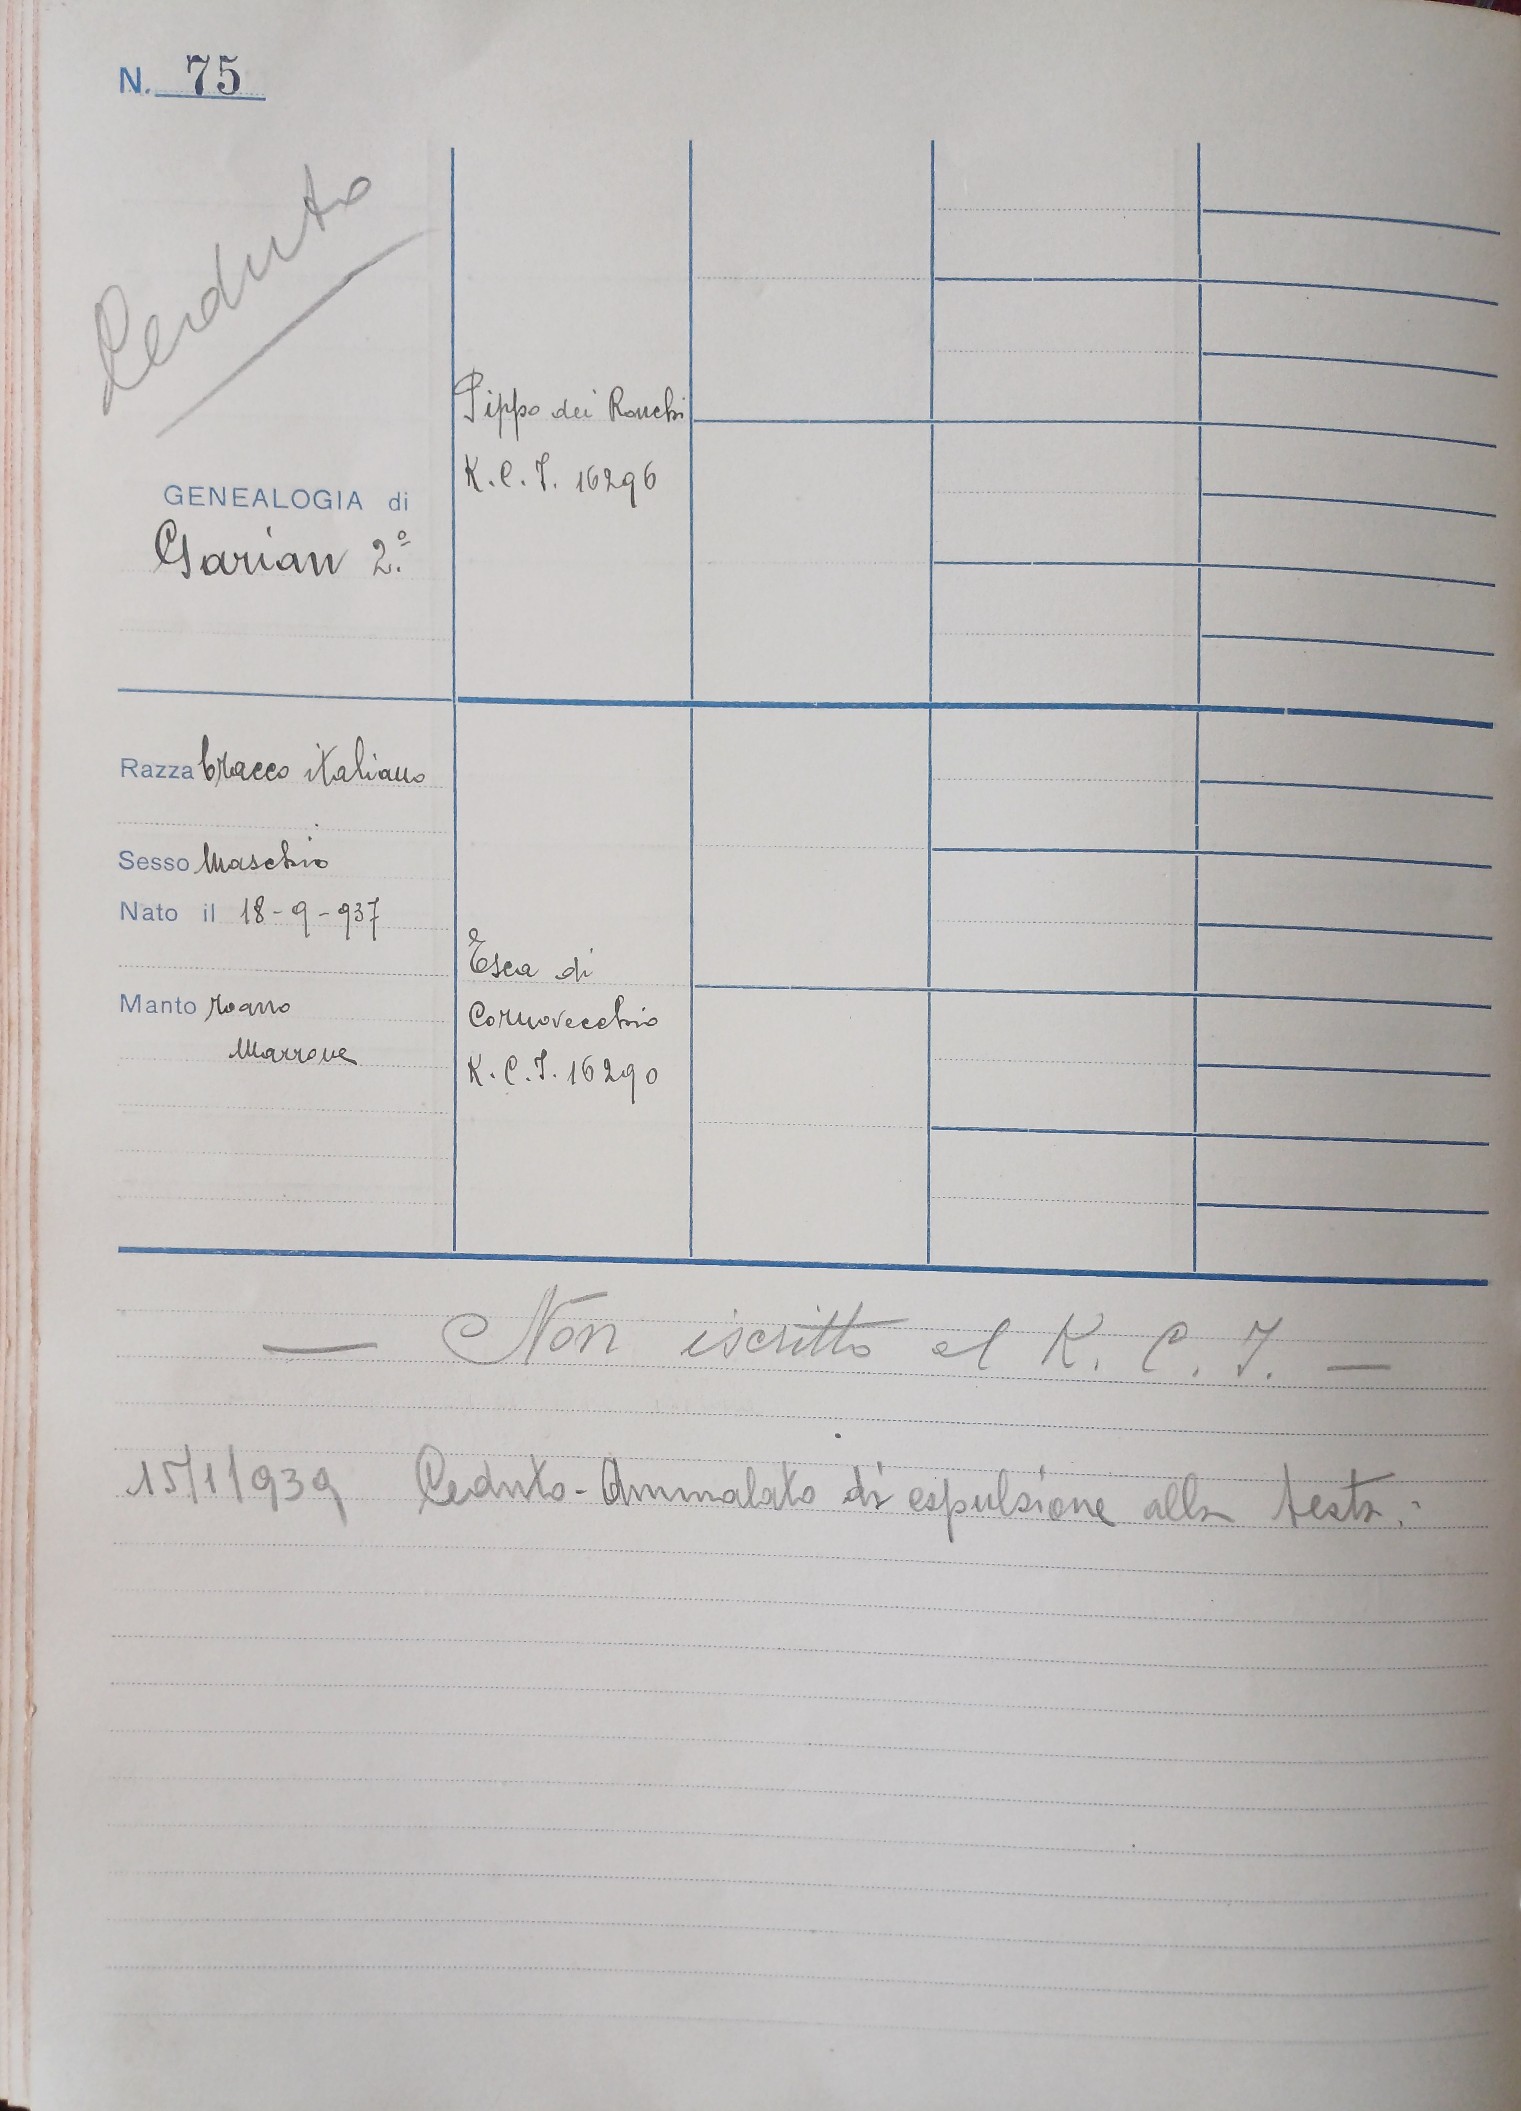 N. 75
Ceduto
Pippo dei Ronchi
K.C.I. 16296
GENEALOGIA di
Garian 2.º
Razza bracco italiano
Sesso Maschio
Nato il 18-9-937
Esca di
Cornovecchio
K.C.I. 16290
Manto roano
Marrone
— Non iscritto al K.C.I. —
15/1/939 Ceduto - Ammalato di espulsione alla testa.